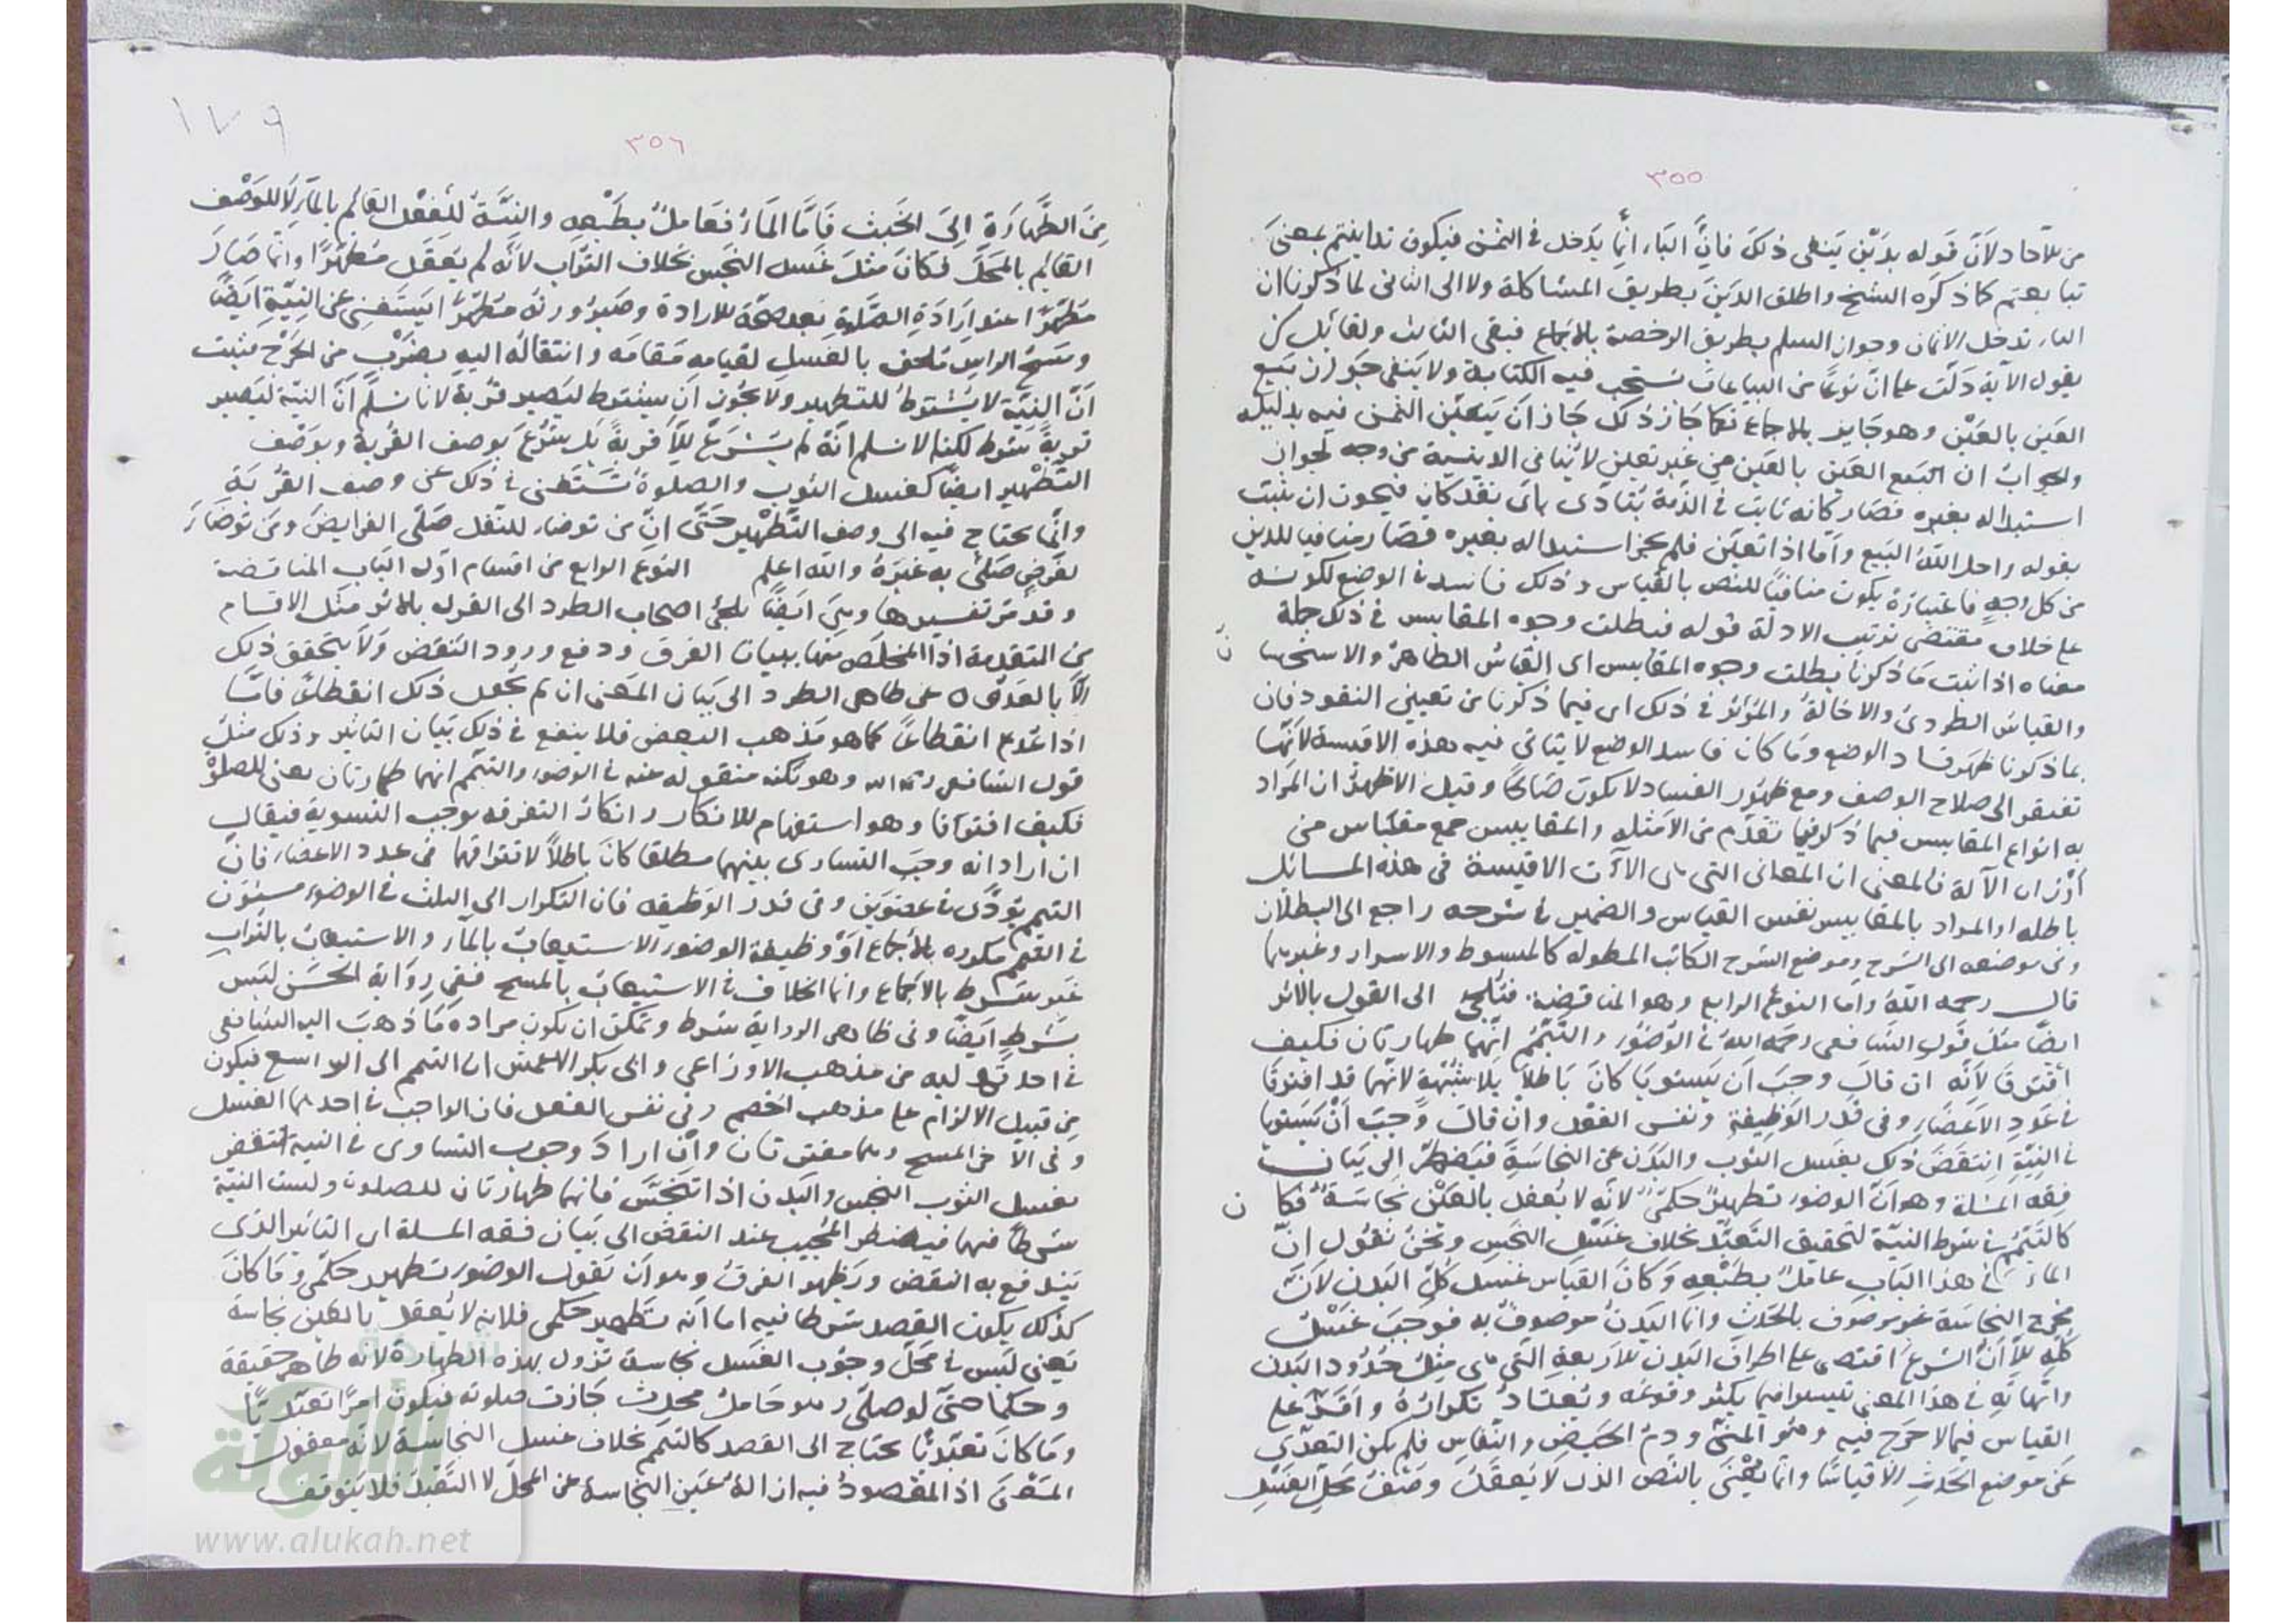 ٣٥٥
من للآحاد لأنّ قوله بدَيْن ينفى ذلك فإنّ الباء انّما يدخل فى الثمن فيكون تداينتم بمعنى
تبايعتم كما ذكره الشيخ واطلق الدين بطريق المشاكلة ولا الى الثانى لما ذكرنا ان
الباء تدخل الاثمان وجواز السلم بطريق الرخصة بالاجماع فبقى الثالث ولقائل ان
يقول الآية دلّت على انّ نوعًا من البياعات يستحب فيه الكتابة ولا ينفى جواز ان بيع
العين بالعين وهو جايز بالاجماع فكما جاز ذلك جاز ان يتعيّن الثمن فيه بدليله
والجواب ان البيع العين بالعين من غير تعيين لا ينافى الدينية من وجه لجواز
استبداله بغيره فصار كانه ثابت فى الذمّة يتادى باى نقد كان فيجوز ان يثبت
بقوله واحل اللّه البيع وامّا اذا تعيّن فلم يجز استبداله بغيره فصار منافيا للدين
من كل وجه فاعتباره يكون منافيًا للنص بالقياس وذلك فاسد فى الوضع لكونه
على خلاف مقتضى ترتيب الادلة قوله فبطلت وجوه المقاييس فى ذلك جملة
معناه اذا ثبت ما ذكرنا بطلت وجوه المقاييس اى القياس الظاهر والاستحسان
والقياس الطردى والاخالة والمؤثر فى ذلك اى فيما ذكرنا من تعيين النقود فان
بما ذكرنا ظهر فساد الوضع وما كان فاسد الوضع لا يتاتى فيه هذه الاقيسة لانّها
تفتقر الى صلاح الوصف ومع ظهور الفساد لا يكون صالحًا وقيل الاظهر ان المراد
به انواع المقاييس فيما ذكر فيما تقدّم من الامثله والمقاييس جمع مقياس من
اوزان الآلة فالمعنى ان المعانى التى هى الآت الاقيسة فى هذه المسائل
باطله او المراد بالمقاييس نفس القياس والضمير فى شرحه راجع الى البطلان
وفى موضعه الى الشرح وموضع الشرح الكتب المطوله كالمبسوط والاسرار وغيرهما
قال رحمه اللّه واما النوع الرابع وهو المناقضة فتلجئ الى القول بالاثر
ايضًا مثل قول الشافعى رحمه اللّه فى الوضوء والتيمّم انّهما طهارتان فكيف
افترقا لانّه ان قال وجب ان يستويا كان باطلاً بلا شبهة لانّهما قد افترقا
فى عدد الاعضاء وفى قدر الوظيفة ونفس الفعل وان قال وجب ان يستويا
فى النيّة انتقض ذلك بغسل الثوب والبدن عن النجاسة فيضطر الى بيان
فقه المسلة وهو انّ الوضوء تطهيرٌ حكمىٌّ لانّه لا يعقل بالعين نجاسة فكان
كالتيمّم فى شرط النيّة لتحقيق التعبّد بخلاف غسل النجس ونحن نقول انّ
الماء فى هذا الباب عاملٌ بطبعه وكان القياس غسل كلّ البدن لانّ
مخرج النجاسة غير موصوف بالحدث وانما البدن موصوف به فوجب غسل
كلّه الّا انّ الشرع اقتصر على اطراف البدن الاربعة التى هى مثل حدود البدن
وامّهاته فى هذا المعنى تيسيرا فيما يكثر وقوعه ويعتاد تكراره واقرّ على
القياس فيما لا حرج فيه وهو المنىّ ودم الحيض والنفاس فلم يكن التعدّى
عن موضع الحدث الّا قياسًا وانّما يعنى بالنص الذى لا يعقل وصف محلّ الغسل
ن
ن
١٧٩
٣٥٦
من الطّهارة الى الخبث فامّا الماء فعاملٌ بطبعه والنيّة للفعل القائم بالماء لا للوصف
القائم بالمحلّ فكان مثل غسل النجس بخلاف التراب لانّه لم يعقل مطهّرًا وانّما صار
مطهّرًا عند ارادة الصلوة وبعد صحّة الارادة وصيرورته مطهّرًا يستغنى عن النيّة ايضًا
ومسح الراس ملحق بالغسل لقيامه مقامه وانتقاله اليه بضرب من الحرج فثبت
انّ النيّة لا يشترط للتطهير ولا يجوز ان يشترط ليصير قربة لانا نسلّم انّ النيّة ليصير
قربةً شرط لكنّا لا نسلم انّه لم يشرع الّا قربةً بل يشرع بوصف القربة وبوصف
التطهير ايضًا كغسل الثوب والصلوة تستغنى فى ذلك عن وصف القربة
وانّما يحتاج فيه الى وصف التطهير حتّى انّ من توضأ للنفل صلّى الفرايض ومن توضأ
لفرض صلّى به غيره واللّه اعلم النوع الرابع من اقسام اول الباب المناقضة
وقد مرّ تفسيرها وهى ايضًا تلجئ اصحاب الطرد الى القول بالاثر مثل الاقسام
المتقدمة اذا المخلص منها ببيان الفرق ودفع ورود النقض ولا يتحقق ذلك
الّا بالعدول عن ظاهر الطرد الى بيان المعنى ان لم يجعل ذلك انقطاعًا فامّا
اذا عدّه انقطاعًا كما هو مذهب البعض فلا ينفع فى ذلك بيان التاثير وذلك مثل
قول الشافعى رحمه اللّه وهو نكته منقوله عنه فى الوضوء والتيمّم انهما طهارتان يعنى للصلوة
فكيف افترقا وهو استفهام للانكار وانكار التفرقه يوجب التسوية فيقال
ان اراد انه وجب التساوى بينهما مطلقا كان باطلاً لافتراقهما فى عدد الاعضاء فانّ
التيمم يؤدّى فى عضوين وفى قدر الوظيفه فان التكرار الى الثلث فى الوضوء مسنون
فى التيمم مكروه بالاجماع او وظيفة الوضوء الاستيعاب بالماء والاستيعاب بالتراب
غير شرط بالاجماع وانما الخلاف فى الاستيعاب بالمسح ففى رواية الحسن ليس
بشرط ايضًا وفى ظاهر الرواية شرط ويمكن ان يكون مراده ما ذهب اليه الشافعى
فى احد قوليه من مذهب الاوزاعى وابى بكر الاعمش ان التيمم الى الرواسغ فيكون
من قبيل الالزام على مذهب الخصم وفى نفس الفعل فان الواجب فى احدهما الغسل
وفى الآخر المسح وهما مفترقان وان اراد وجوب التساوى فى النية انتقض
بغسل الثوب النجس والبدن اذا تنجّس فانهما طهارتان للصلوة وليست النيّة
شرطًا فيهما فيضطر المجيب عند النقض الى بيان فقه المسلة اى التاثير الذى
يندفع به النقض ويظهر الفرق وهو ان يقول الوضوء تطهير حكمى وما كان
كذلك يكون القصد شرطا فيه اما انّه تطهير حكمى فلانه لا يعقل بالعين نجاسة
يعنى ليس فى محلّ وجوب الغسل نجاسة تزول بهذه الطهارة لانه طاهر حقيقة
وحكما حتّى لو صلّى وهو حامل محدث جازت صلوته فيكون امرًا تعبّديًّا
وما كان تعبّديًّا يحتاج الى القصد كالتيمم بخلاف غسل النجاسة لانه معقول
المعنى اذ المقصود فيه ازالة عين النجاسة عن المحلّ لا التعبّد فلا يتوقف
الألوكة
www.alukah.net